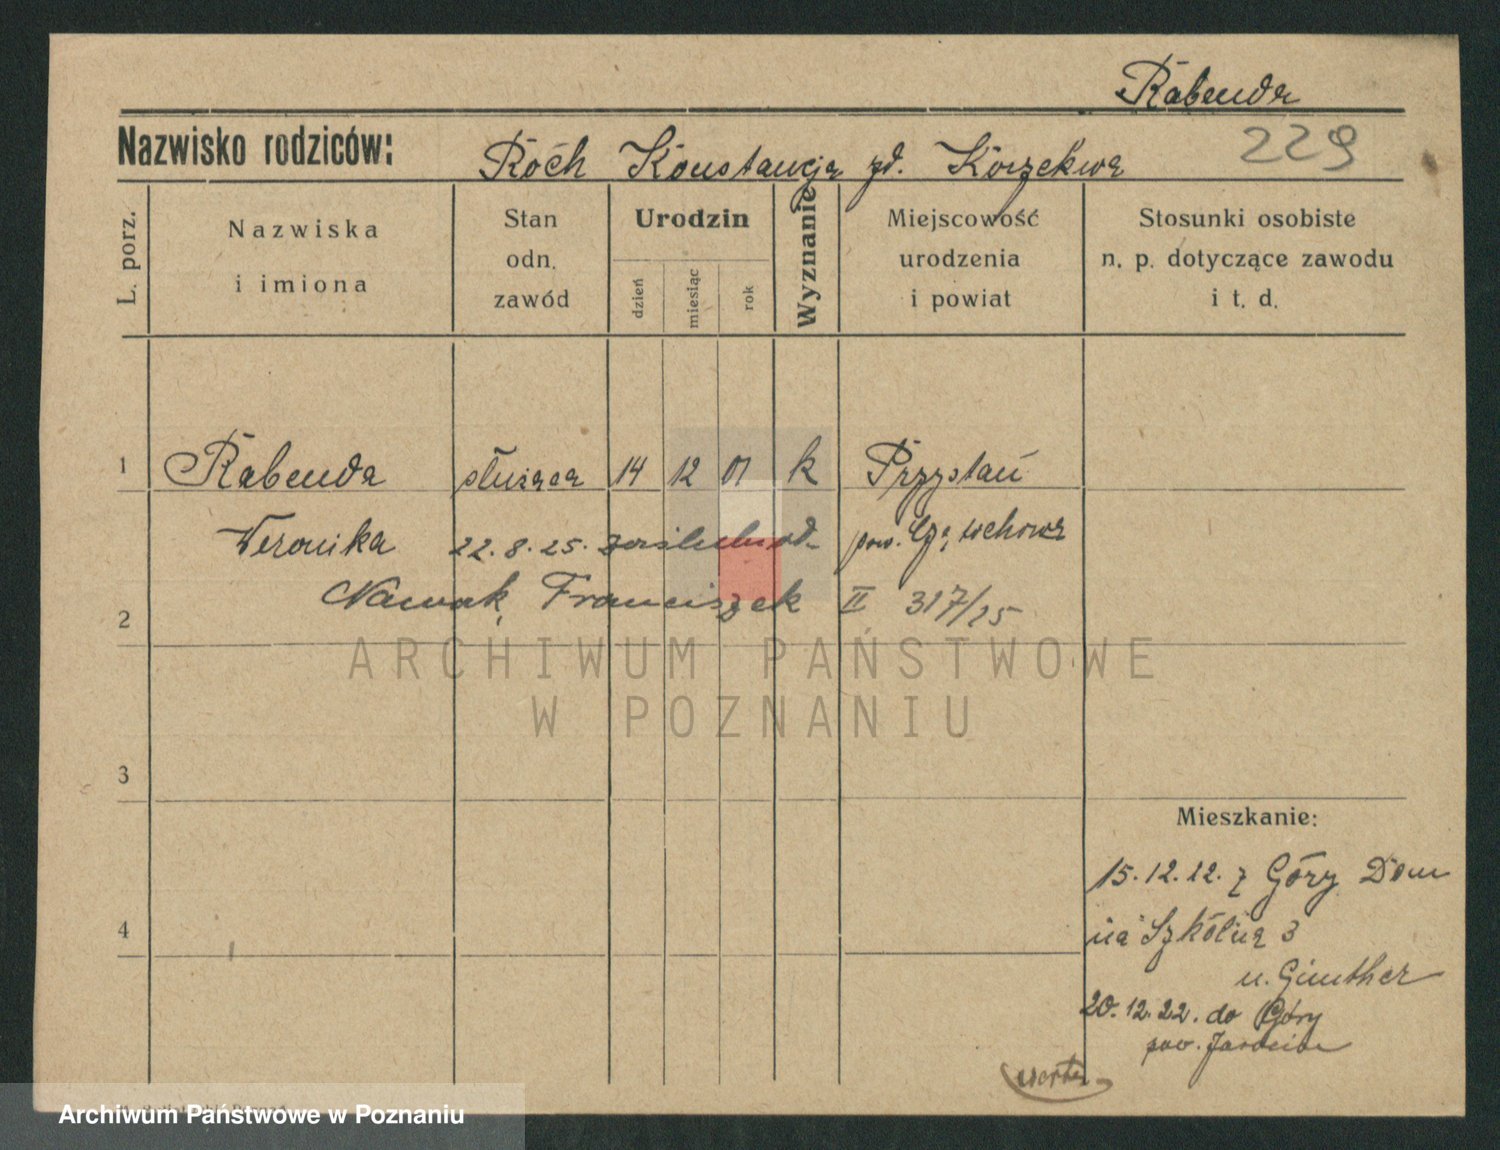 Rabenda
Nazwisko rodziców: Roch Konstancja zd. Korzekwa
229
L. porz.
Nazwiska
i imiona
Stan
odn.
zawód
Urodzin
dzień
miesiąc
rok
Wyznanie
Miejscowość
urodzenia
i powiat
Stosunki osobiste
n. p. dotyczące zawodu
i t. d.
1 Rabenda służąca 14 12 01 k Przystań
Weronika 22.8.25. zaślub. pow.
2 Nawak Franciszek II 317/25
3
Mieszkanie:
15.12.22. z Góry Dom
4 na Szkólną 3
u. Günther
20.12.22. do Góry
pow. Jarocin
ARCHIWUM PAŃSTWOWE
W POZNANIU
Archiwum Państwowe w Poznaniu